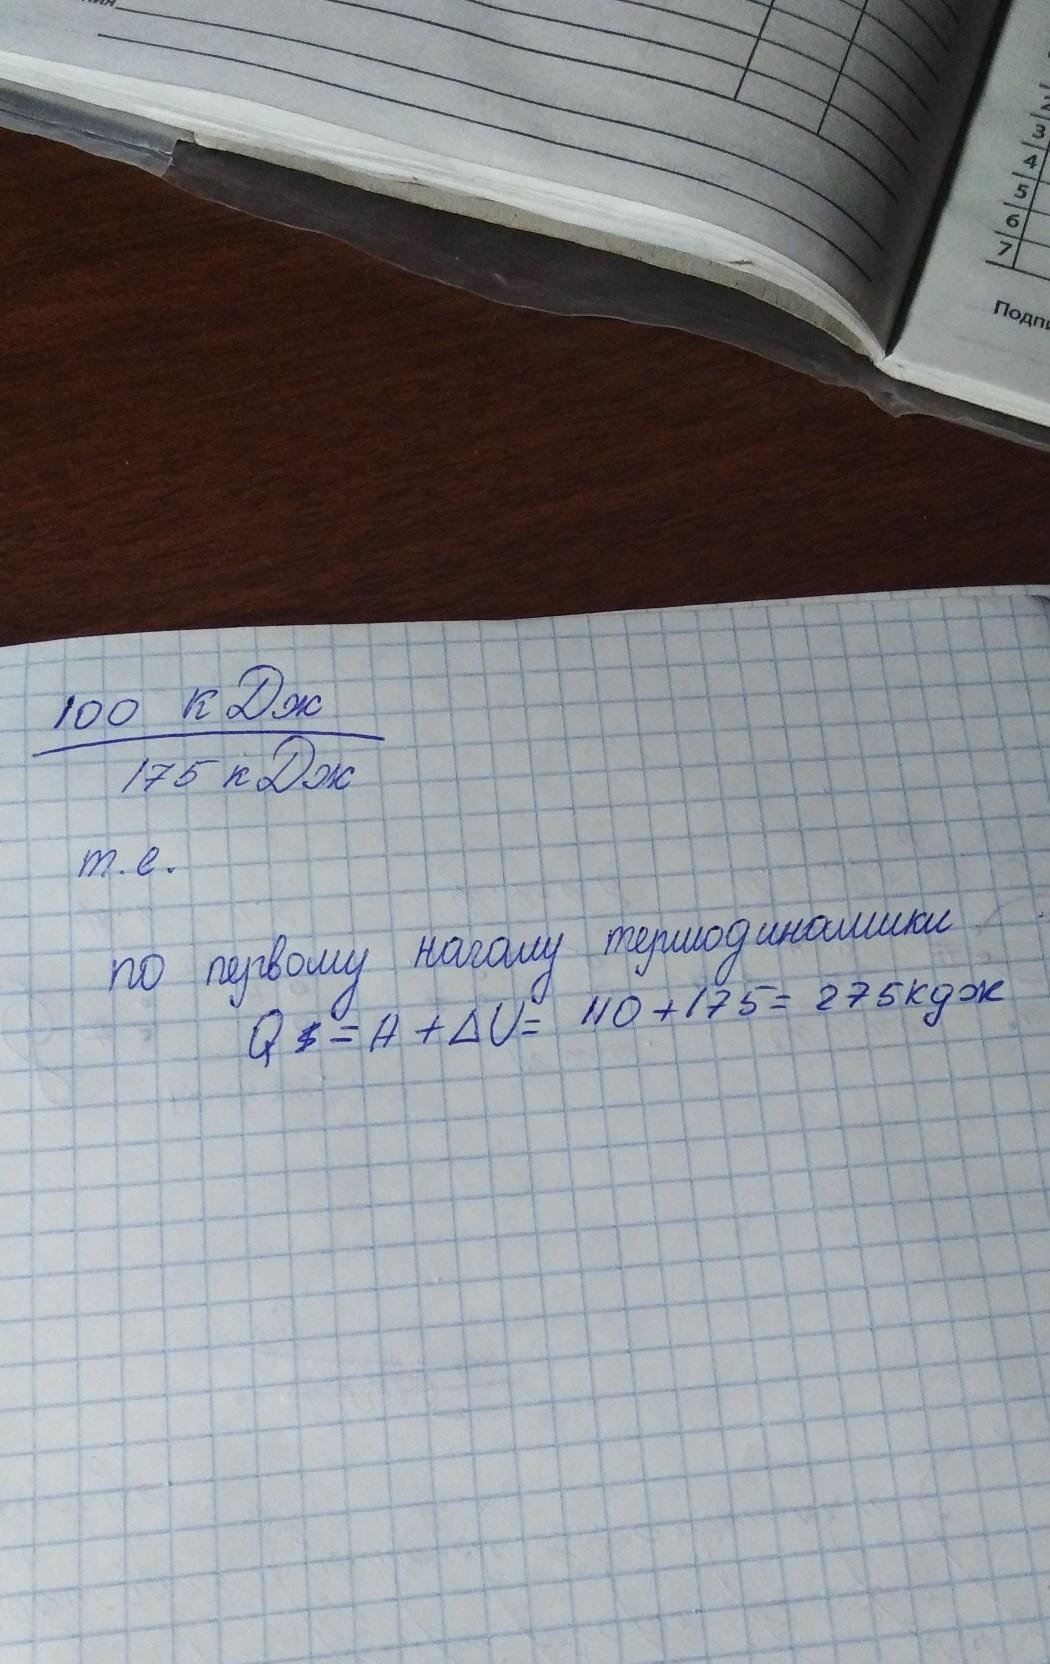 3
4
5
6
7
100 кДж
175 кДж
т.е.
по первому началу термодинамики
Q = A + ΔU = 110 + 175 = 275 кдж